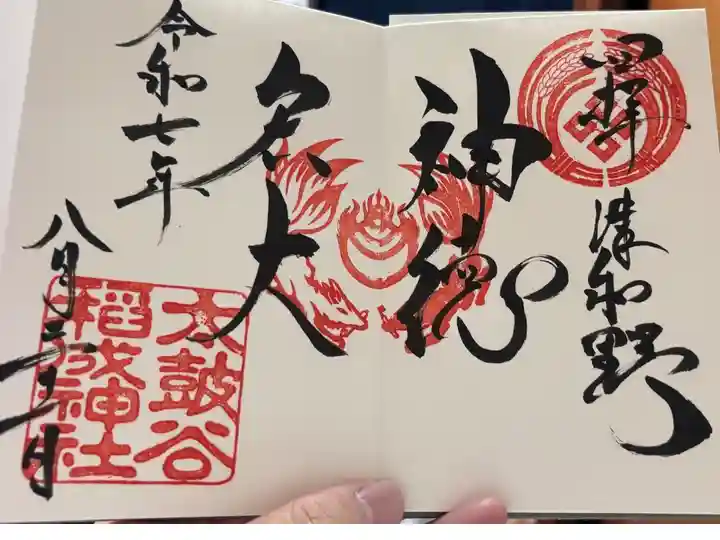 奉拝
津和野
神徳
宏大
令和七年
八月
太皷谷
稲成神社